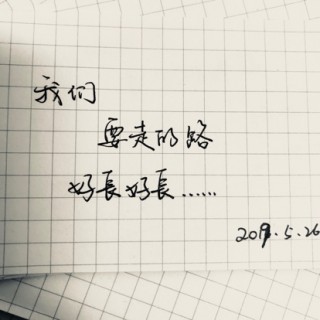 我们
要走的路
好長好長......
2019.5.26